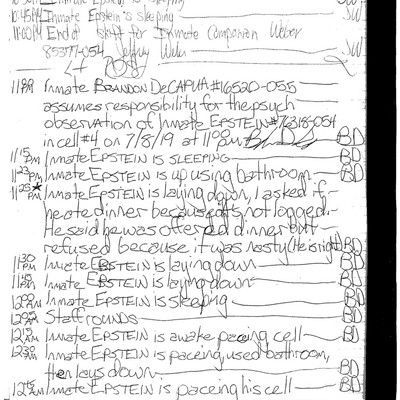 Inmate Epstein is sleeping SW
10:45PM Inmate Epstein's sleeping SW
11:00PM End of shift for Inmate Companion Weber
85377-054 Jeffrey Weber SW
11PM Inmate BRANDON DeCAPUA #16520-055
assumes responsibility for the psych
observation of Inmate EPSTEIN #76318-054
in cell #4 on 7/8/19 at 11:00PM BD
11:15PM Inmate EPSTEIN IS SLEEPING BD
11:23PM Inmate EPSTEIN is up using bathroom BD
11:25PM* Inmate EPSTEIN is laying down, I asked if
he ate dinner because it's not logged.
He said he was offered dinner but
refused because it was nasty (He is right) BD
11:30PM Inmate EPSTEIN is laying down BD
11:45PM Inmate EPSTEIN is laying down BD
12:00AM Inmate EPSTEIN is sleeping BD
12:05AM Staff rounds BD
12:15AM Inmate EPSTEIN is awake paceing cell BD
12:30AM Inmate EPSTEIN is paceing, used bathroom,
then lays down BD
12:45AM Inmate EPSTEIN is paceing his cell BD